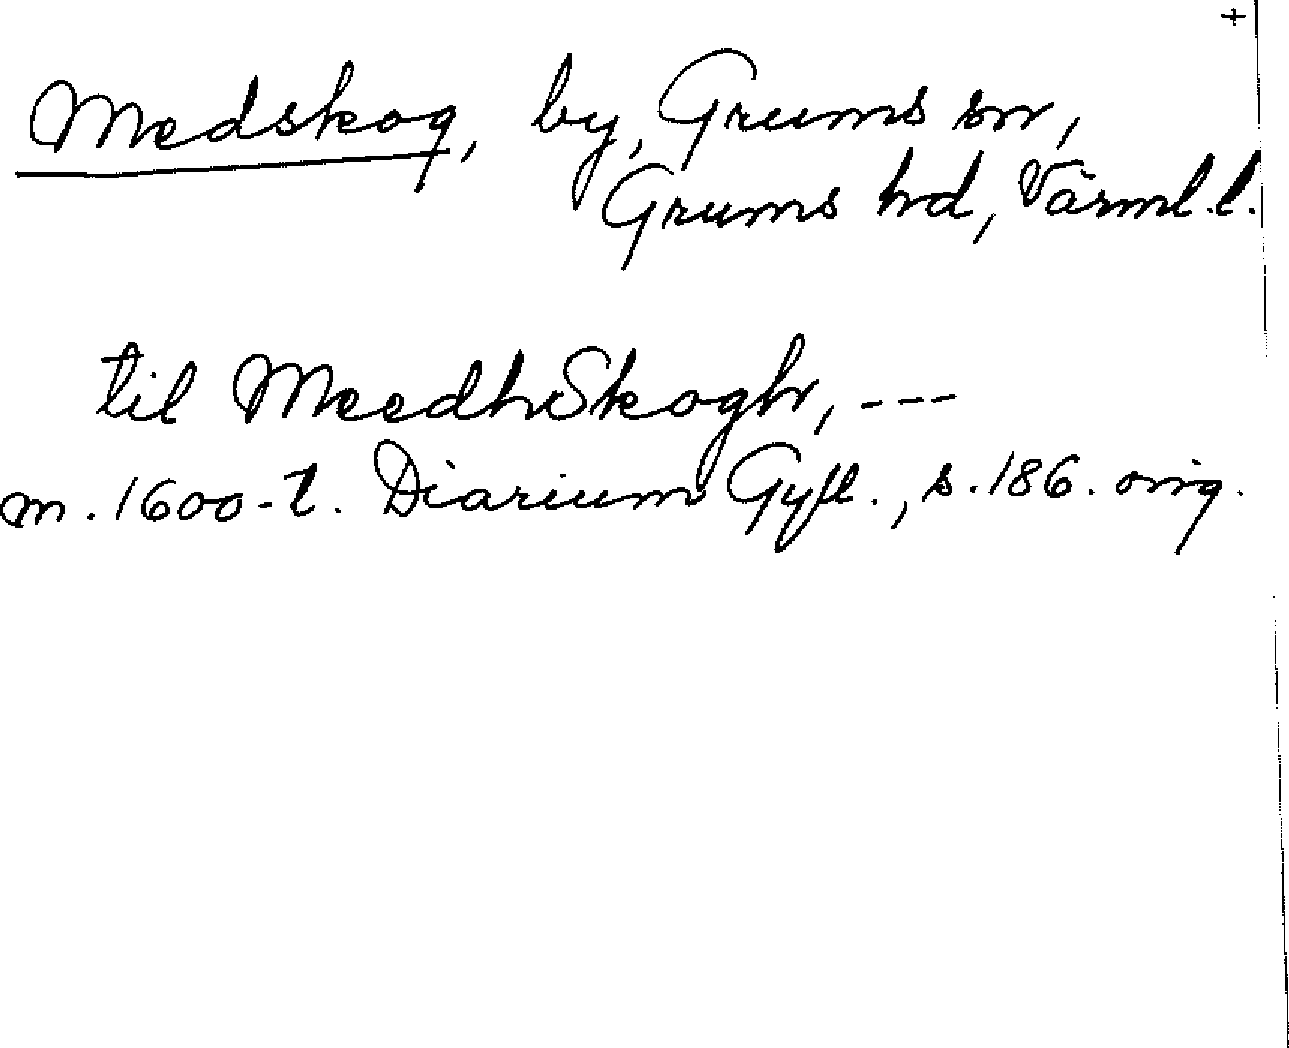 +
Medskog, by, Grums sn,
Grums hd, Värml. l.
til MeedhSkogh, ---
m. 1600-t. Diarium Gyll., s. 186. orig.